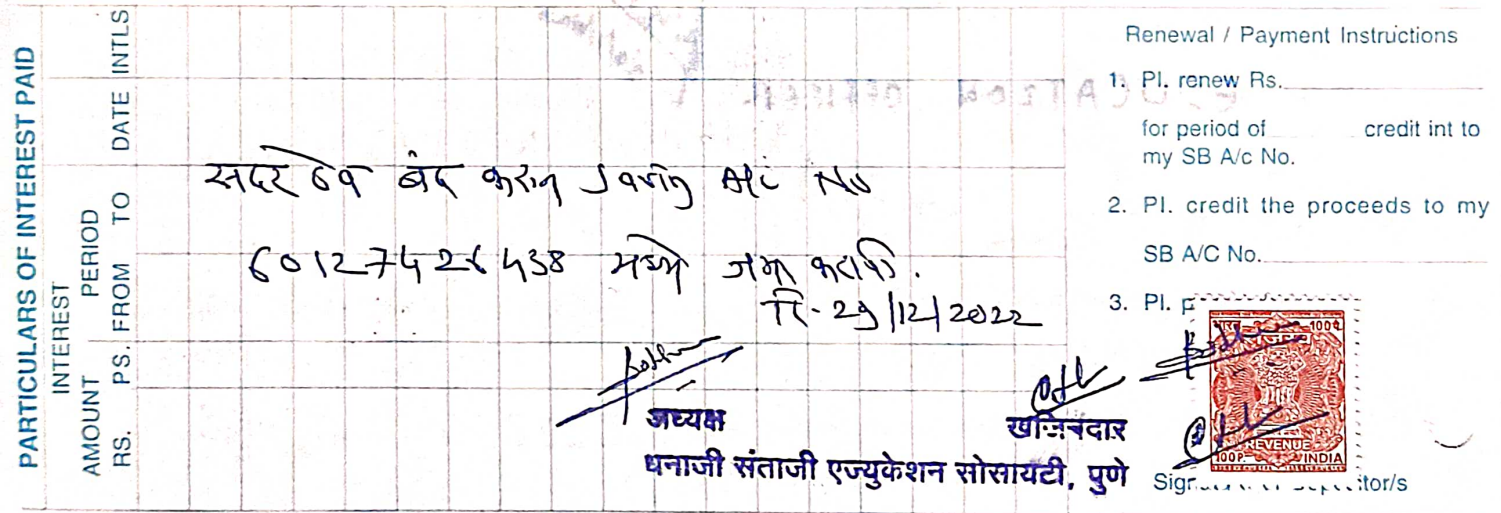 PARTICULARS OF INTEREST PAID
INTEREST
AMOUNT PERIOD
RS. PS. FROM TO DATE INTLS
सदर ठेव बंद करुन Saving A/c No
60127426438 मध्ये जमा करावी.
दि-29/12/2022
अध्यक्ष
खजिनदार
धनाजी संताजी एज्युकेशन सोसायटी, पुणे
Renewal / Payment Instructions
1. Pl. renew Rs.
for period of credit int to
my SB A/c No.
2. Pl. credit the proceeds to my
SB A/C No.
3. Pl. p
100
REVENUE
100P. INDIA
itor/s